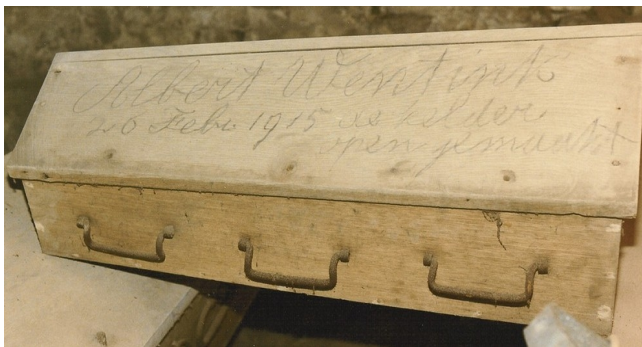 Albert Wentink
26 Febr 1915 is kelder
open gemaakt